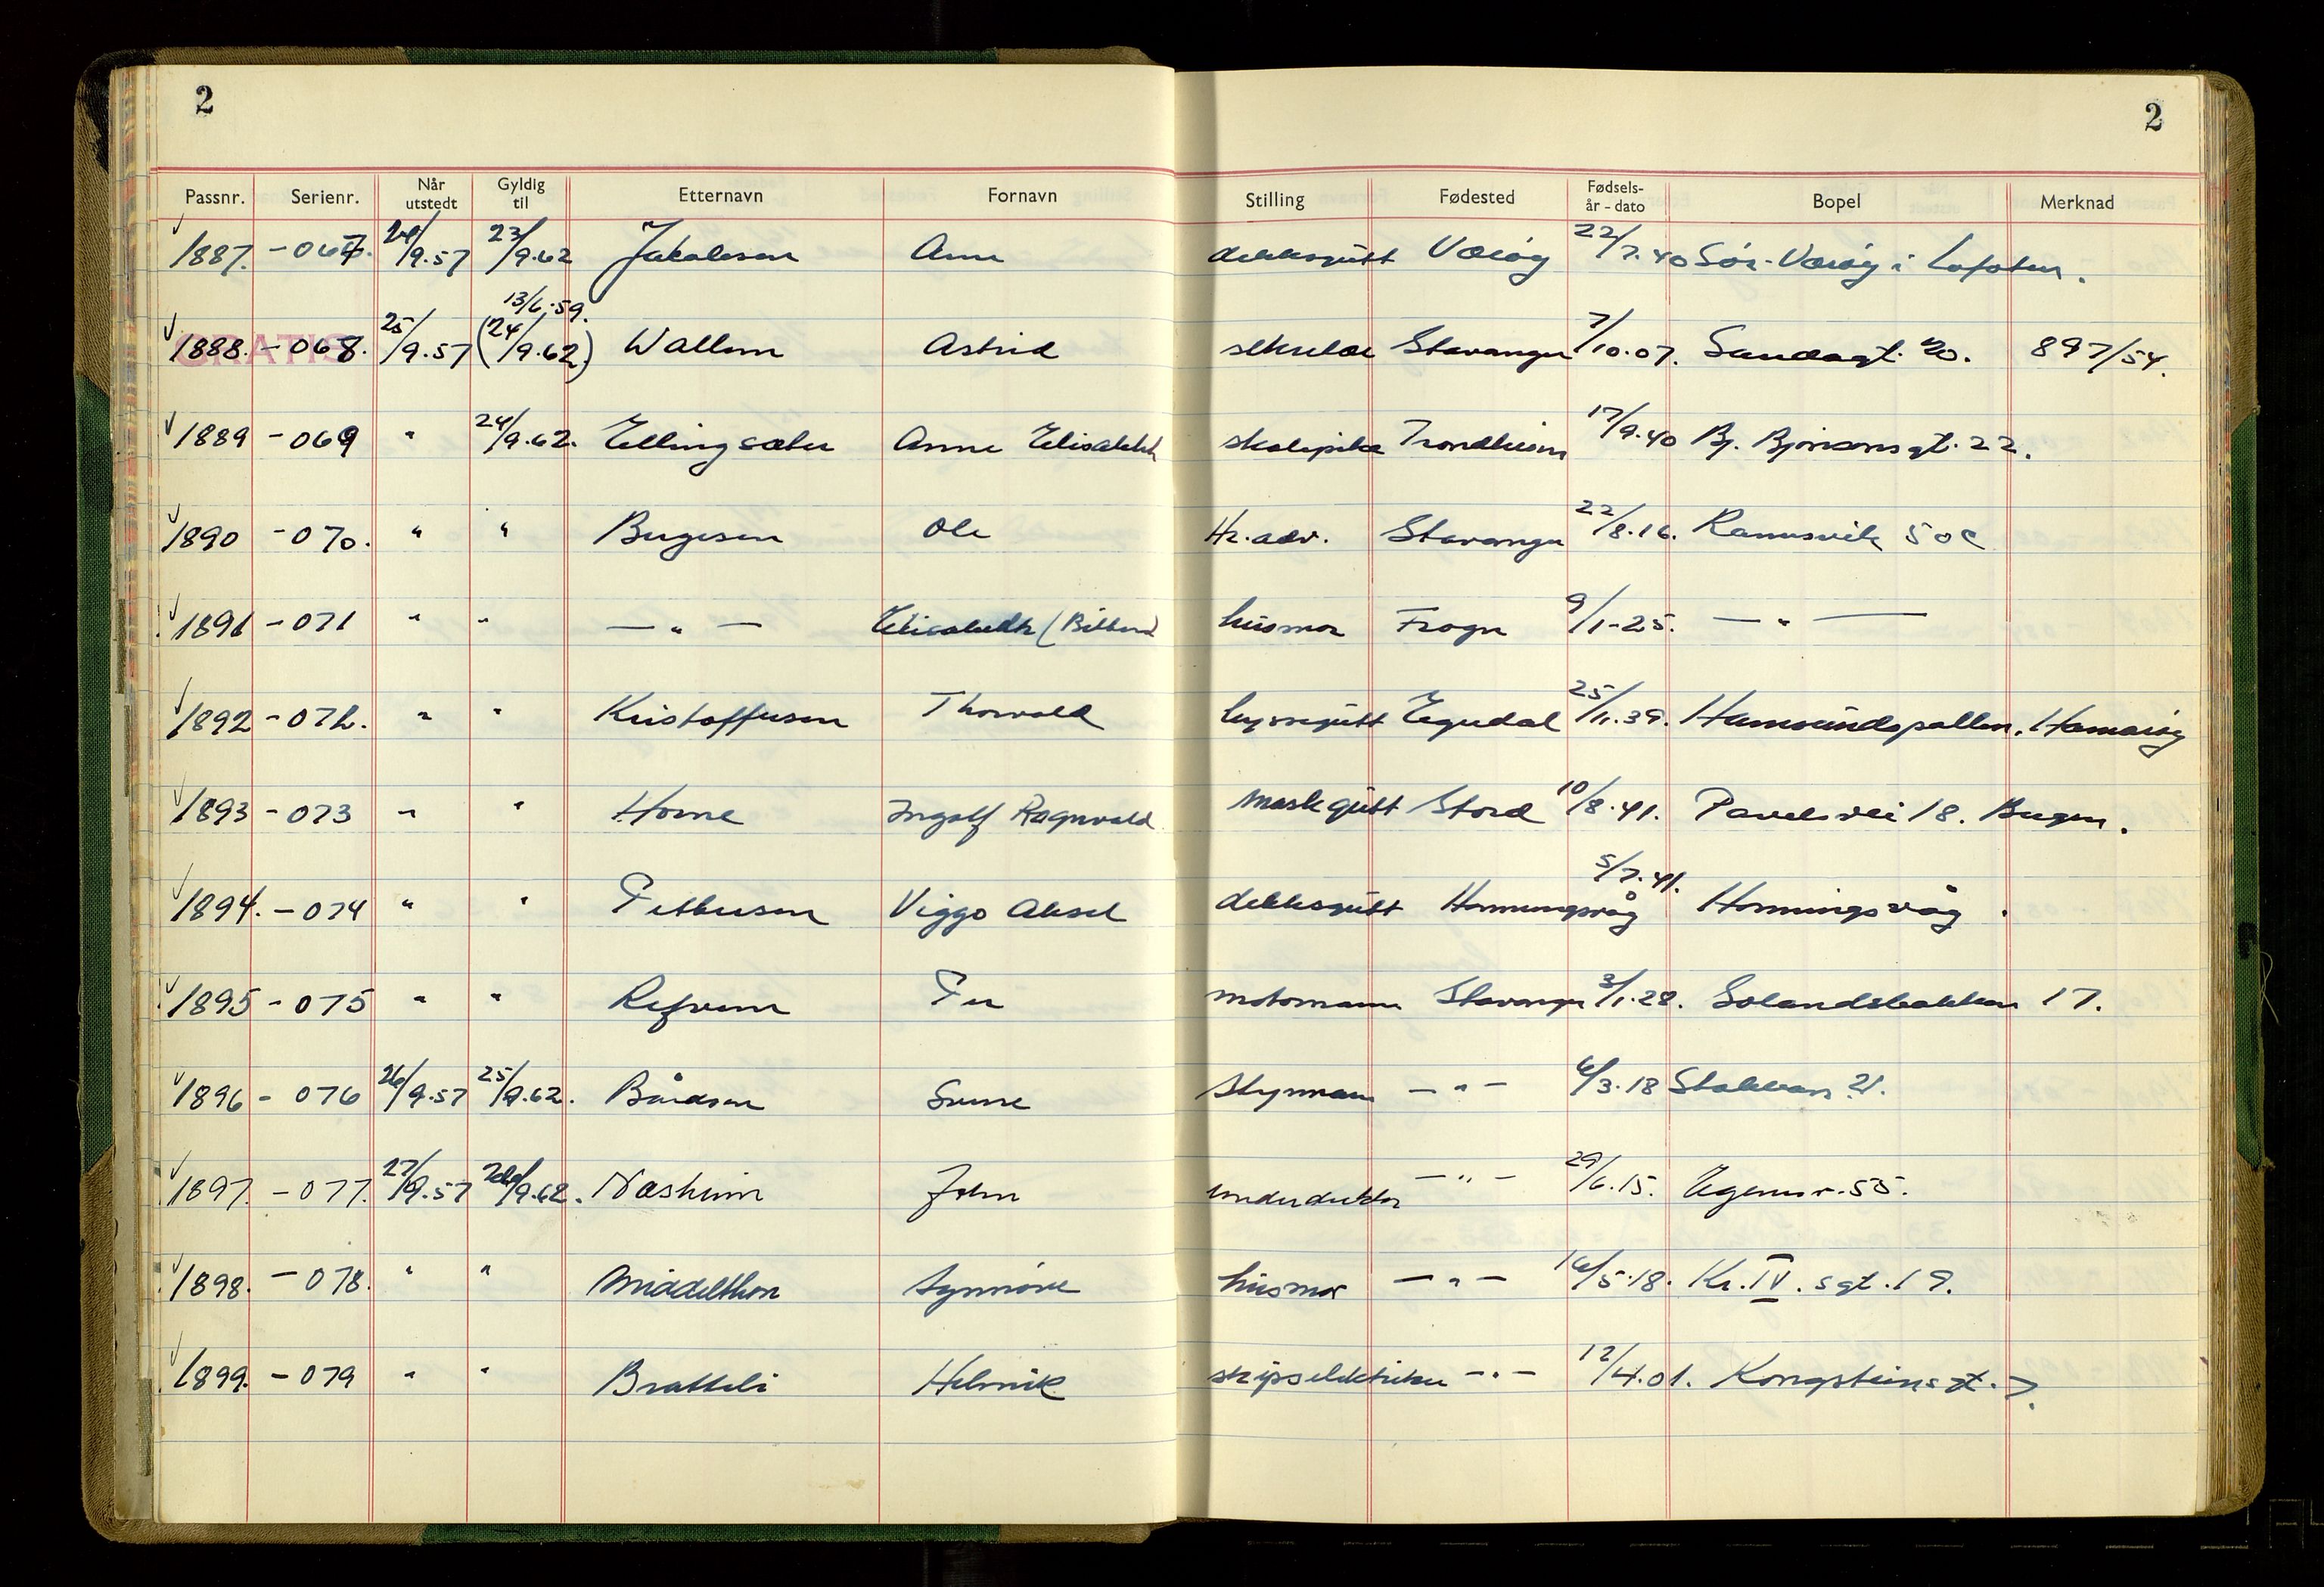 2 2
Passnr. Serienr. Når utstedt Gyldig til Etternavn Fornavn Stilling Fødested Fødsels-år - dato Bopel Merknad
1887. -067. 24/9.57 23/9.62 Jakobsen Arne dekksgutt Værøy 22/7.40 Sør-Værøy i Lofoten.
GRATIS
13/6.59.
1888. -068. 25/9.57 (24/9.62) Wallem Astrid sekretær Stavanger 7/10.07. Sandsgt. 20. 897/54.
1889 -069 " 24/9.62. Ellingsæter Anne Elisabeth skolepike Trondheim 17/9.40 Bj. Bjørnsonsgt. 22.
1890 -070. " " Bergesen Ole H.r.adv. Stavanger 22/8.16. Ramsvik 50c
1891 -071 " " — " — Elisabeth (Bittend husmor Frogn 9/1-25. — " —
1892 -072. " " Kristoffersen Thorvald byssegutt Egedal 25/11.39. Hamsundpollen. Hamarøy
1893 -073 " " Horne Ingolf Ragnvald maskgutt Stord 10/8.41. Pavelsvei 18. Bergen.
1894. -074 " " Pettersen Viggo Aksel dekksgutt Honningsvåg 5/7.41. Honningsvåg.
1895 -075 " " Refvem Per motormann Stavanger 3/1.28. Solandsbakken 17.
1896 - 076 26/9.57 25/9.62. Bårdsen Sverre Styrmann — " — 6/3.18 Stokkav. 21.
1897. -077. 27/9.57 26/9.62. Næsheim John underdirektør — " — 29/6.15. Egenesv. 55.
1898. -078. " " Middelthon Synnøve husmor — " — 16/5.18. Kr. IV. sgt. 19.
1899. -079 " " Bratteli Helmik skipselektriker — " — 12/4.01. Kongsteinsgt. 7.